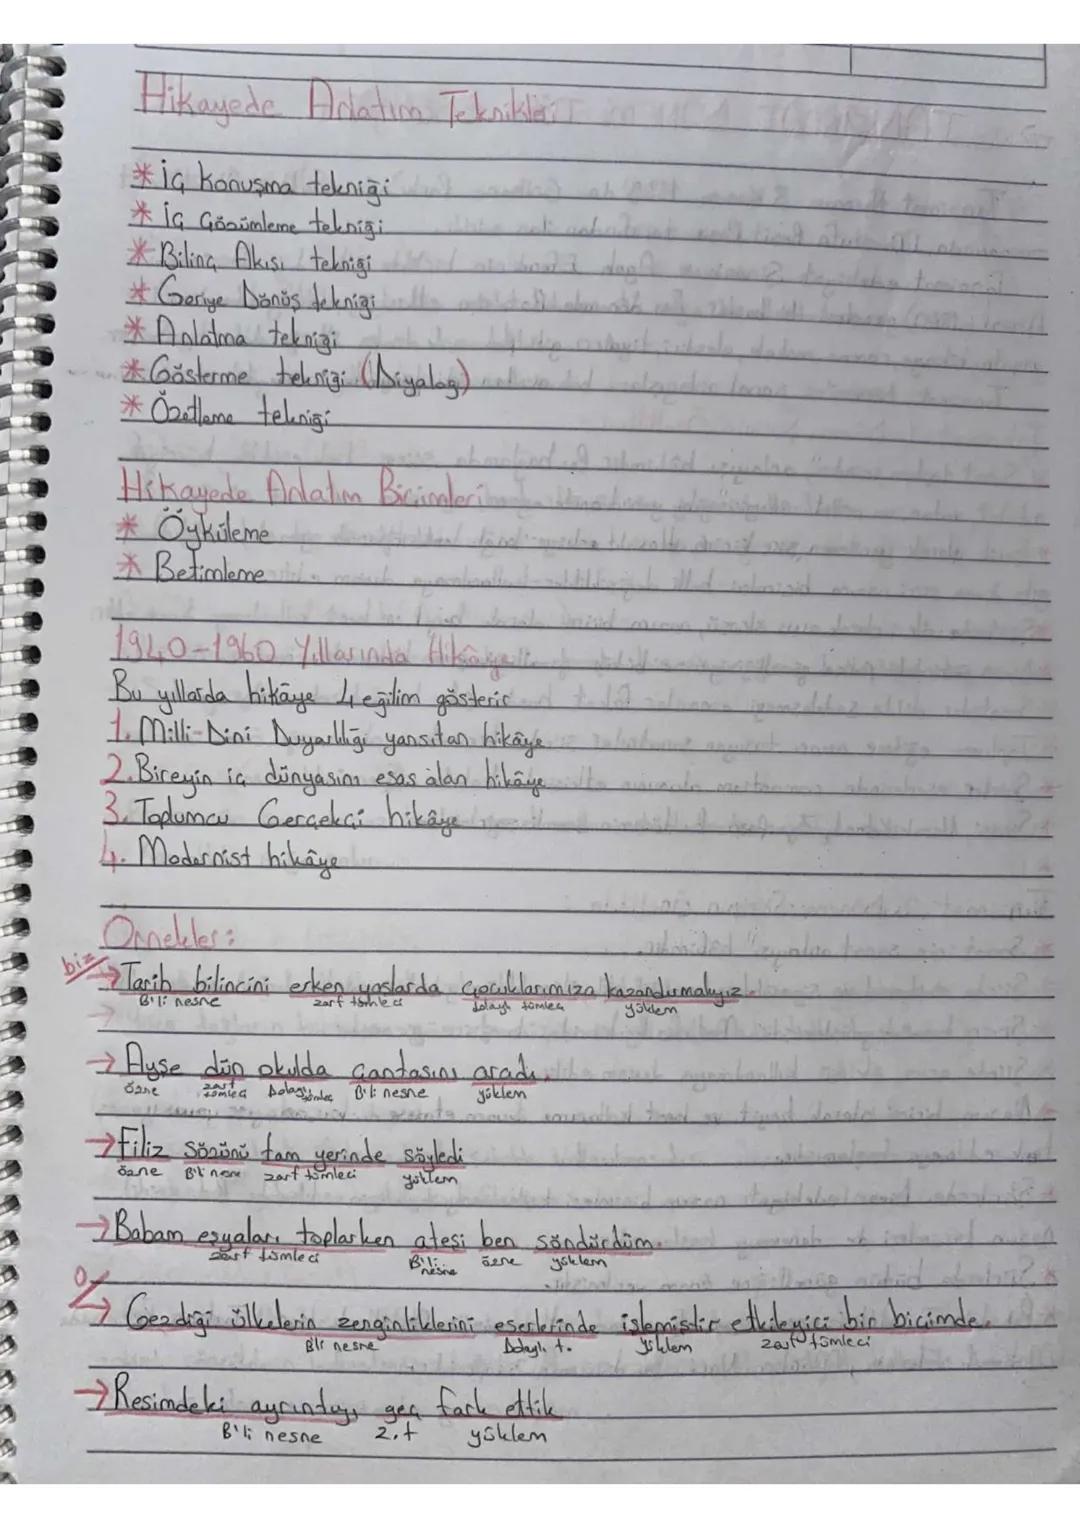 Hikayede Anlatım Teknikleri
* İç Konuşma tekniği
* İç Çözümleme tekniği
* Bilinç Akışı tekniği
* Geriye Dönüş tekniği
* Anlatma tekniği
* Gösterme tekniği (Diyalog)
* Özetleme tekniği
Hikayede Anlatım Biçimleri
* Öyküleme
* Betimleme
1940-1960 Yıllarında Hikâye
Bu yıllarda hikâye 4 eğilim gösterir
1. Milli-Dini Duyarlılığı yansıtan hikâye
2. Bireyin iç dünyasını esas alan hikâye
3. Toplumcu Gerçekçi hikâye
4. Modernist hikâye
Örnekler:
biz
→ Tarih bilincini erken yaşlarda çocuklarımıza kazandırmalıyız.
B'li nesne zarf tümleci dolaylı tümleç yüklem
→ Ayşe dün okulda çantasını aradı.
özne zarf tümleci Dolaylı tümleç B'li nesne yüklem
→ Filiz sözünü tam yerinde söyledi
özne B'li nesne zarf tümleci yüklem
→ Babam eşyaları toplarken ateşi ben söndürdüm.
zarf tümleci B'li nesne özne yüklem
O
→ Gezdiği ülkelerin zenginliklerini eserlerinde işlemiştir etkileyici bir biçimde.
B'li nesne Dolaylı t. Yüklem zarf tümleci
→ Resimdeki ayrıntıyı geç fark ettik
B'li nesne z.t yüklem